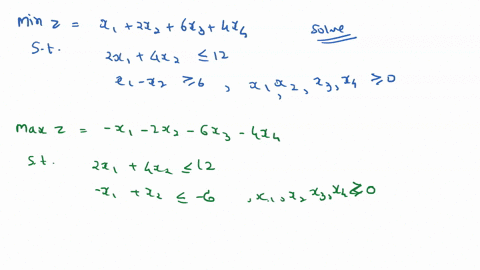 min z = x₁ + 2x₂ + 6x₃ + 4x₄ Solve
S.t. 2x₁ + 4x₂ ≤ 12
x₁ - x₂ ≥ 6 , x₁, x₂, x₃, x₄ ≥ 0
max z = -x₁ - 2x₂ - 6x₃ - 4x₄
S.t. 2x₁ + 4x₂ ≤ 12
-x₁ + x₂ ≤ -6 , x₁, x₂ x₃, x₄ ≥ 0